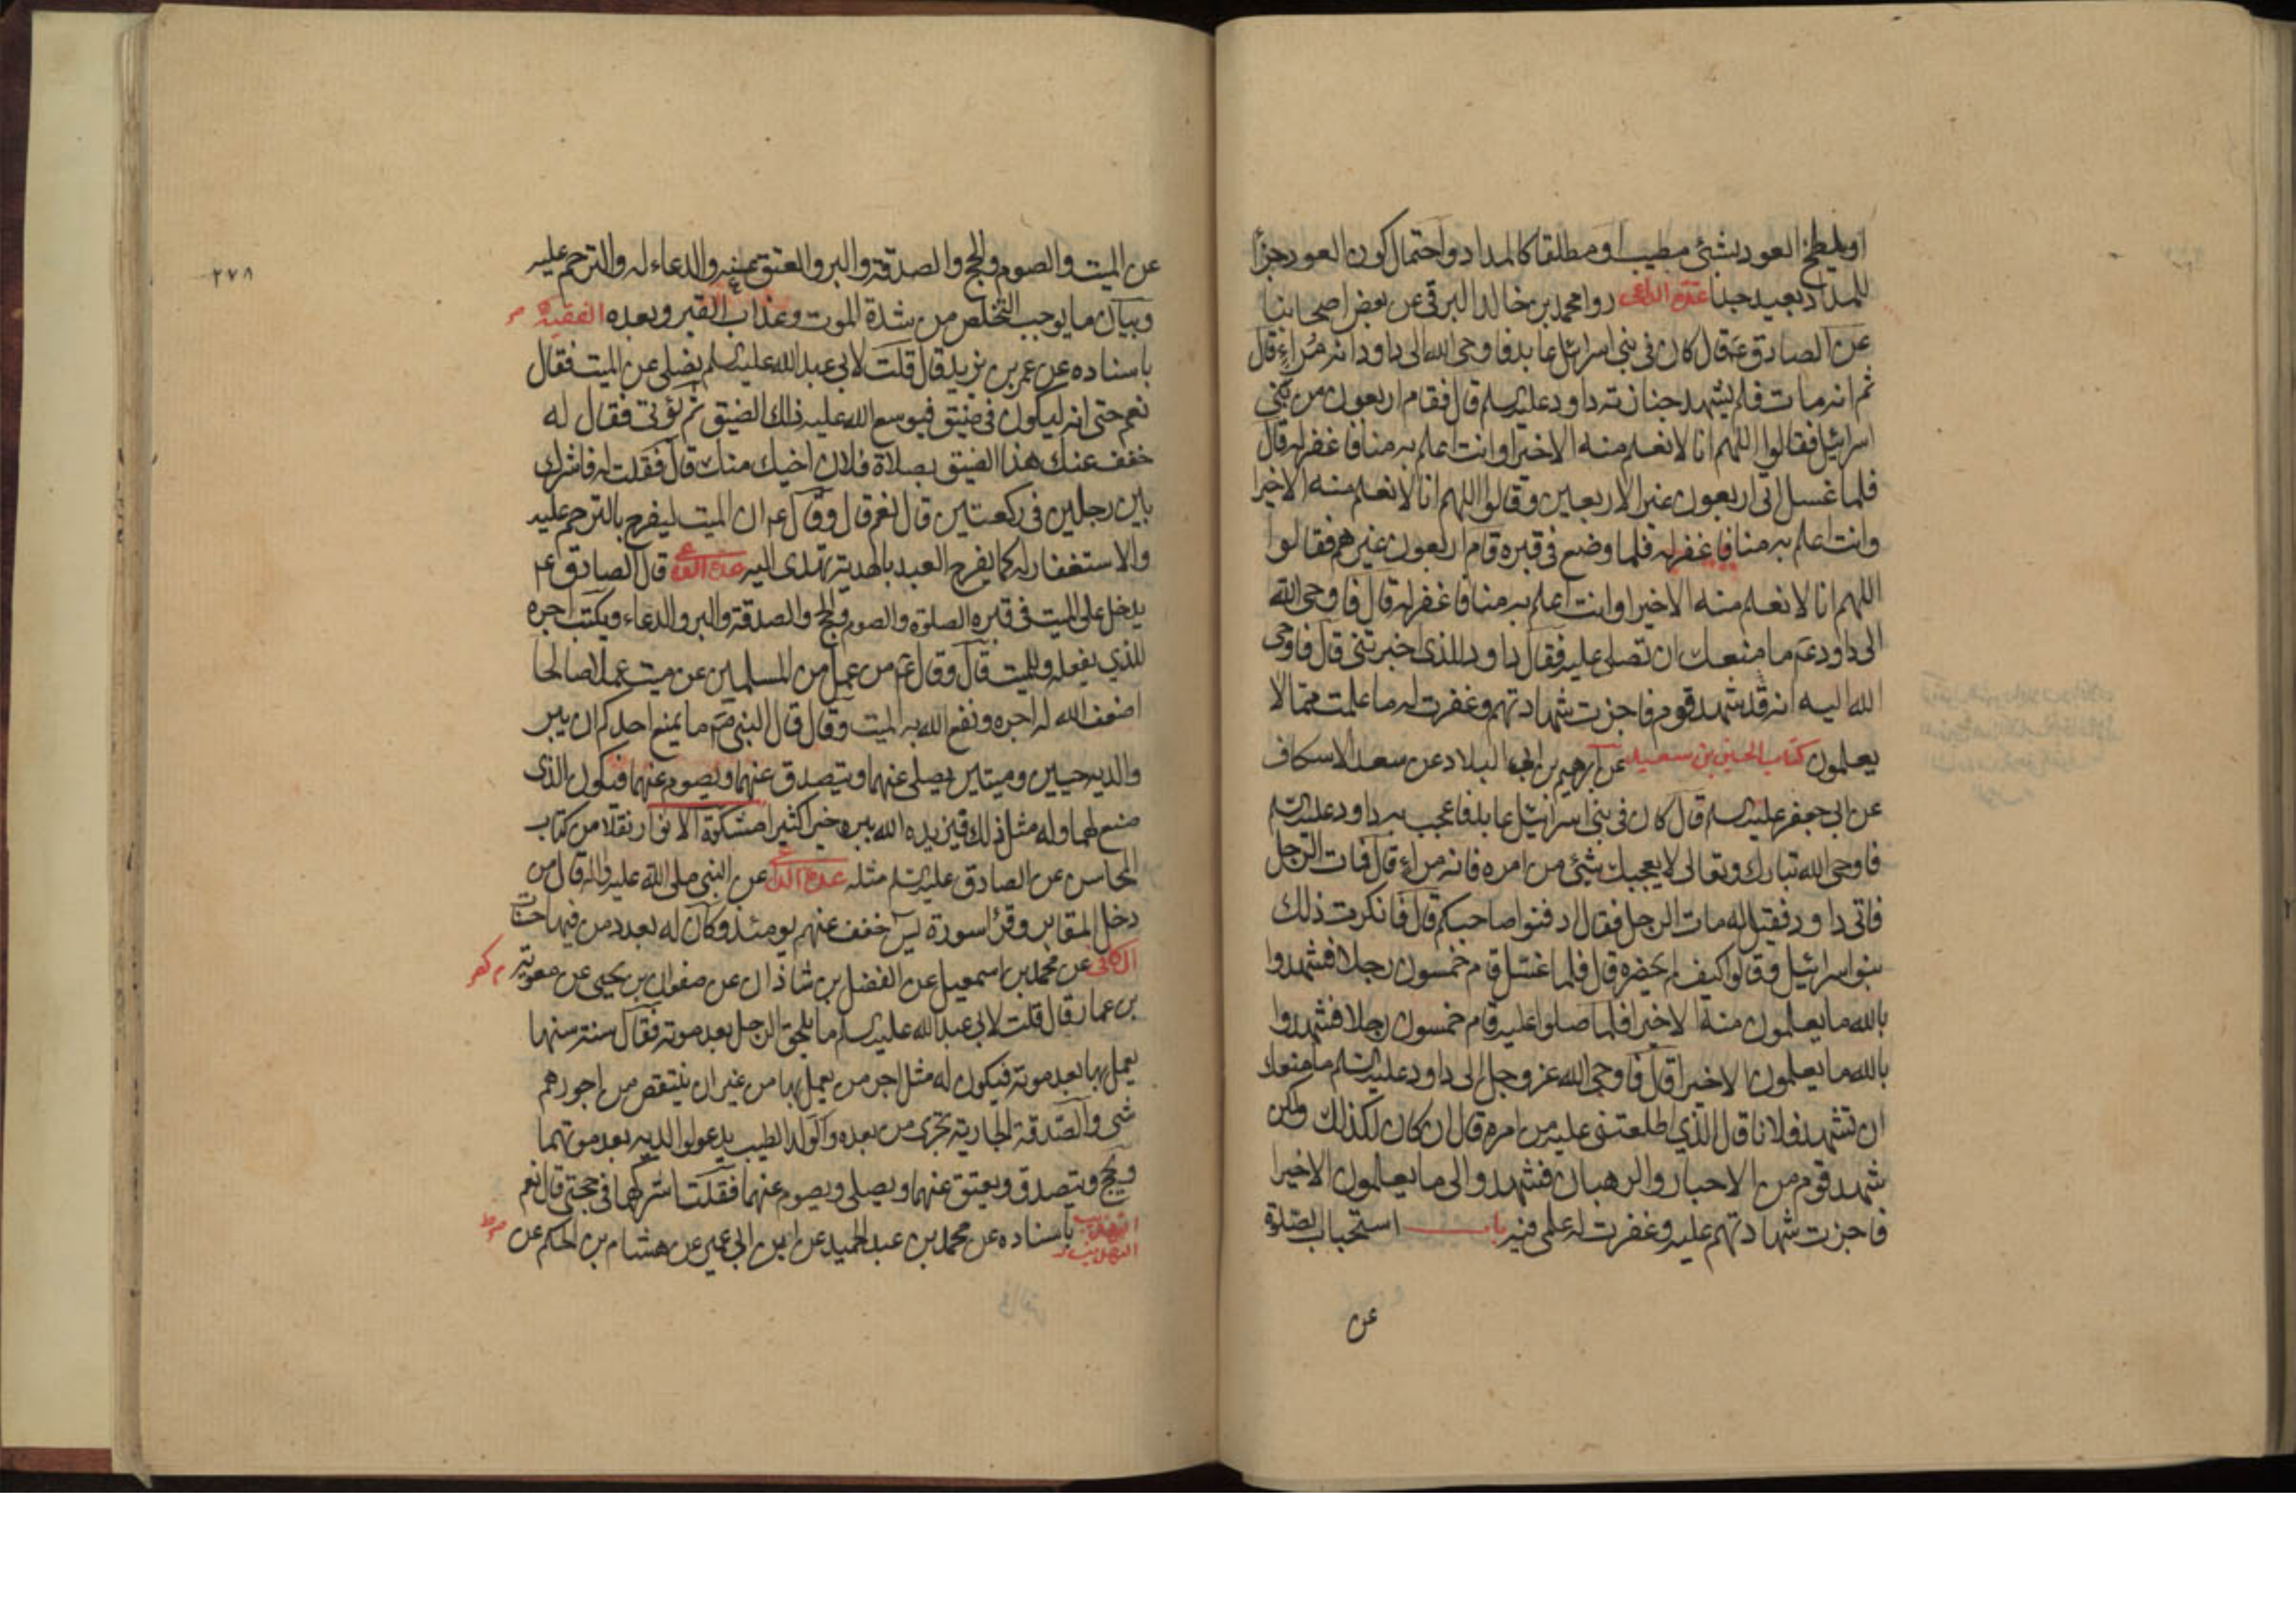 او يلطخ العود بشئ مطيب او مطلقا كالمداد واحتمال كون العود جزأ
للمداد بعيد جدا عدة الداعى روا محمد بن خالد البرقى عن بعض اصحابنا
عن الصادق ع قال كان فى بنى اسرائيل عابد فاوحى الله الى داود انه مراء قال
ثم انه مات فلم يشهد جنازته داود عليه السلم قال فقام اربعون من بنى
اسرائيل فقالوا اللهم انا لا نعلم منه الا خيرا وانت اعلم به منا فاغفر له قال
فلما غسل اتى اربعون غير الاربعين وقالوا اللهم انا لا نعلم منه الا خيرا
وانت اعلم به منا فاغفر له فلما وضع فى قبره قام اربعون غيرهم فقالوا
اللهم انا لا نعلم منه الا خيرا وانت اعلم به منا فاغفر له قال فاوحى الله
الى داود ع ما منعك ان تصلى عليه فقال داود للذى خبرتنى قال فاوحى
الله اليه انه قد شهد قوم فاجزت شهادتهم وغفرت له ما علمت مما لا
يعلمون كتاب الحسين بن سعيد عن ابرهيم بن ابى البلاد عن سعد الاسكاف
عن ابى جعفر عليه السلم قال كان فى بنى اسرائيل عابد فاعجب به داود عليه السلم
فاوحى الله تبارك وتعالى لا يعجبك شئ من امره فانه مراء قال فمات الرجل
فاتى داود فقيل له مات الرجل فقال ادفنوا صاحبكم قال فانكرت ذلك
بنو اسرائيل وقالوا كيف لم يحضره قال فلما غسل قام خمسون رجلا فشهدوا
بالله ما يعلمون منه الا خيرا فلما صلوا عليه قام خمسون رجلا فشهدوا
بالله ما يعلمون الا خيرا قال فاوحى الله عز وجل الى داود عليه السلم ما منعك
ان تشهد فلانا قال الذى اطلعتنى عليه من امره قال ان كان لكذلك ولكن
شهد قوم من الاحبار والرهبان فشهدوا لى ما يعلمون الا خيرا
فاجزت شهادتهم عليه وغفرت له علمى فيه باب استحباب الصلوة
عن
٢٧٨
عن الميت والصوم والحج والصدقة والبر والعتق عنه والدعاء له والترحم عليه
وبيان ما يوجب التخلص من شدة الموت وعذاب القبر وبعده الفقيه
باسناده عن عمر بن يزيد قال قلت لابى عبد الله عليه السلم يصلى عن الميت فقال
نعم حتى انه ليكون فى ضيق فيوسع الله عليه ذلك الضيق ثم يؤتى فقال له
خفف عنك هذا الضيق بصلاة فلان اخيك عنك قال فقلت له فاشرك
بين رجلين فى ركعتين قال نعم قال وقال ع ان الميت ليفرح بالترحم عليه
والاستغفار له كما يفرح العبد بالهدية تهدى اليه عدة الداعى قال الصادق ع
يدخل على الميت فى قبره الصلوة والصوم والحج والصدقة والبر والدعاء ويكتب اجره
للذى يفعله وللميت قال وقال ع من عمل من المسلمين عن ميت عملا صالحا
اضعف الله له اجره ونفع الله به الميت وقال قال النبى ص ما يمنع احدكم ان يبر
والديه حيين وميتين يصلى عنهما ويتصدق عنهما ويصوم عنهما فيكون الذى
صنع لهما وله مثل ذلك فيزيده الله ببره خيرا كثيرا مشكوة الانوار نقلا من كتاب
المحاسن عن الصادق عليه السلم مثله عدة الداعى عن النبى صلى الله عليه واله قال من
دخل المقابر وقرأ سورة يس خفف عنهم يومئذ وكان له بعدد من فيها حسنات
الكافى عن محمد بن اسمعيل عن الفضل بن شاذان عن صفوان بن يحيى عن معوية
بن عمار قال قلت لابى عبد الله عليه السلم ما يلحق الرجل بعد موته فقال سنة سنها
يعمل بها بعد موته فيكون له مثل اجر من يعمل بها من غير ان ينتقص من اجورهم
شئ والصدقة الجارية تجرى من بعده والولد الطيب يدعو لوالديه بعد موتهما
ويحج ويتصدق ويعتق عنهما ويصلى ويصوم عنهما فقلت اشركهما فى حجتى قال نعم
التهذيب باسناده عن محمد بن عبد الحميد عن ابن ابى عمير عن هشام بن الحكم عن